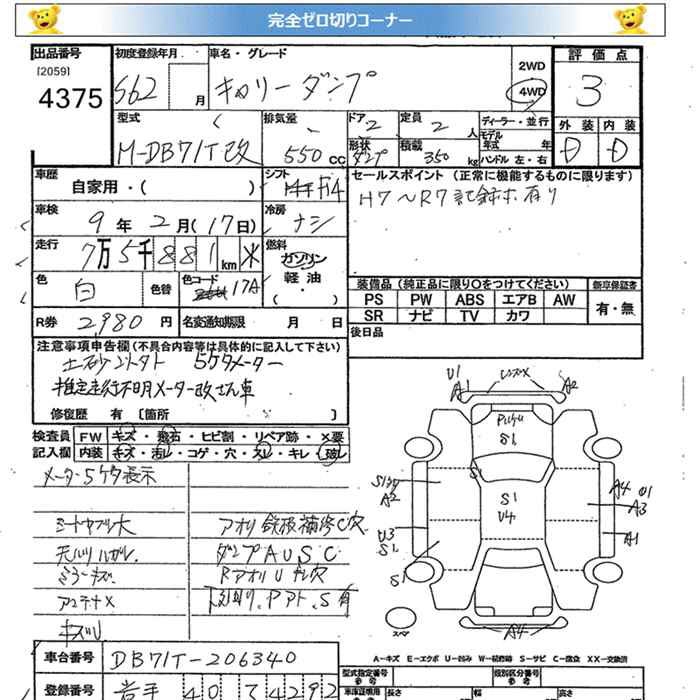 完全ゼロ切りコーナー
出品番号 初度登録年月 車名・グレード 2WD 評価点
[2059]
4375 S62 月 キャリーダンプ 4WD 3
型式 排気量 ドア 2 定員 2人 ディーラー・並行 外装 内装
モデル年式 年
M-DB71T改 550cc 形状 ダンプ 積載 350kg ハンドル 左・右 D D
車歴 自家用・( ) シフト F4 セールスポイント (正常に機能するものに限ります)
H7〜R7記録ボ有り
車検 9年2月(17日) 冷房 ナシ
走行 7万5千881km ※ 燃料 ガソリン
軽油・( )
色 白 色替 色コード 17A 装備品 (純正品に限り○をつけてください) 新車保証書
PS PW ABS エアB AW 有・無
R券 2,980円 名変通知期限 月 日 SR ナビ TV カワ
後日品
注意事項申告欄 (不具合内容等は具体的に記入して下さい)
土砂ダンプ 5ケタメーター
推定走行不明メーター改ざん車
修復歴 有 [箇所 ]
検査員 FW キズ・飛石・ヒビ割・リペア跡・×要
記入欄 内装 キズ・汚レ・コゲ・穴・スレ・キレ・破レ
メーター5ケタ表示
シートヤブレ大 アオリ鉄板補修C穴
天バリハガレ ダンプAUSC
ミラーキズ RアオリU 穴
アンテナX 下廻り.Pアト.S有
キズU
U1 A1 レンズX A2
S1
S1
S1
U4
A2
U3
S1
S1
A4 U1
A3
A1
スペア
A4
A-キズ E-エクボ U-凹み W-補修跡 S-サビ C-腐食 XX-交換済
車台番号 DB71T-206340
登録番号 岩手 40 て 4292
型式指定番号 類別区分番号
参考 長さ 幅 高さ